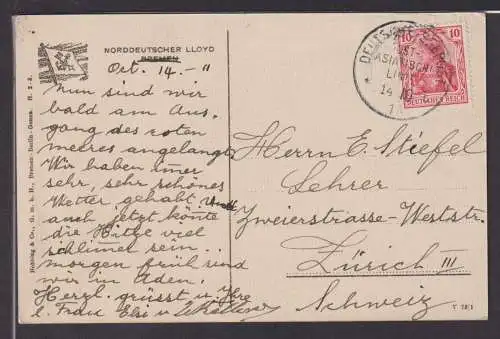 NORDDEUTSCHER LLOYD
BREMEN
Oct. 14. - 11
Nun sind wir
bald am Aus-
gang des roten
meeres angelangt.
Wir haben imer
sehr, sehr schönes
Wetter gehabt, und
auch jetzt könte
die Hitze viel
schlimer sein.
morgen früh sind
wir in Aden.
Herzl. grüsst u. Ihre
l. Frau Elsi u.
Herrn E. Stiefel
Lehrer
Zweierstrasse-Weststr.
Zürich III
Schweiz
DEUTSCHE SEEPOST
OST-
ASIATISCHE
LINIE
14 10
10 10
DEUTSCHES REICH
Mühling & Co., G. m. b. H., Bremen-Berlin-Genua. H. 2-3.
T 12/1